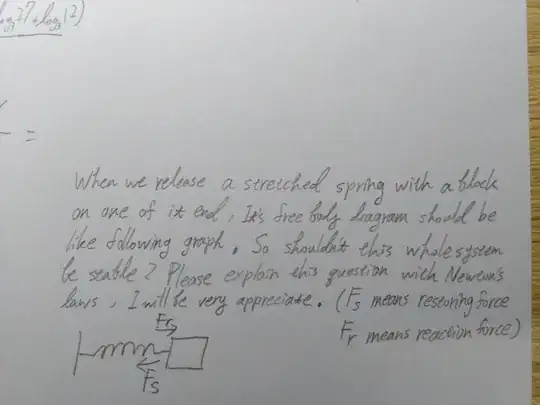 log₃27+log₃12)
=
When we release a stretched spring with a block
on one of it end, It's free body diagram should be
like following graph. So shouldn't this whole system
be stable? Please explain this question with Newton's
laws, I will be very appreciate. (Fs means restoring force
Fr means reaction force)
Fr
Fs